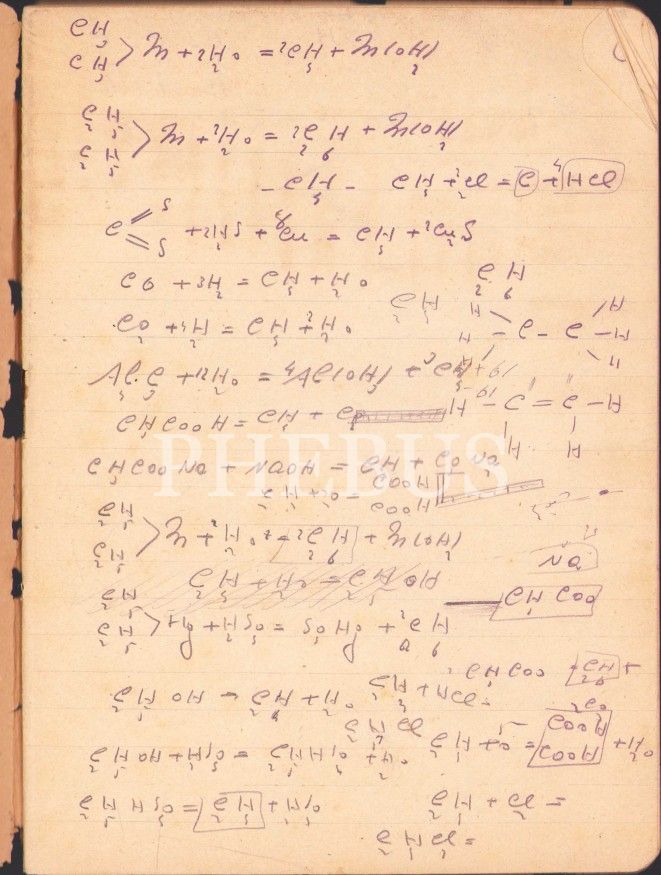 CH3
CH3 > Zn + 2H2O = 2CH4 + Zn(OH)2
C2H5
C2H5 > Zn + 2H2O = 2C2H6 + Zn(OH)2
- CH4 - CH4 + 2Cl2 = C + 4HCl
C S S + 2H2S + 8Cu = CH4 + 4Cu2S
CO + 3H2 = CH4 + H2O
C2H6
CO2 + 4H2 = CH4 + 2H2O
H C - C - H
H H
Al4C3 + 12H2O = 4Al(OH)3 + 3CH4
CH3COOH = CH4 + CO2
H - C = C - H
H H
PHEBUS
CH3COONa + NaOH = CH4 + CO3Na2
COOH
COOH
C2H5
C2H5 > Zn + 2H2O = 2C2H6 + Zn(OH)2
Na
C2H5 + H2O = C2H5OH
CH3COO
C2H5
C2H5 > Hg + H2SO4 = SO4Hg + 2C2H6
CH3COO C2H6 +
2CO2
C2H5OH = C2H4 + H2O
C2H4 + HCl =
C2H5Cl
C2H4 + 5O = COOH COOH + H2O
C2H5OH + H2SO4 = C2H5HSO4 + H2O
C2H5HSO4 = C2H4 + H2SO4
C2H4 + Cl2 =
C2H4Cl2 =